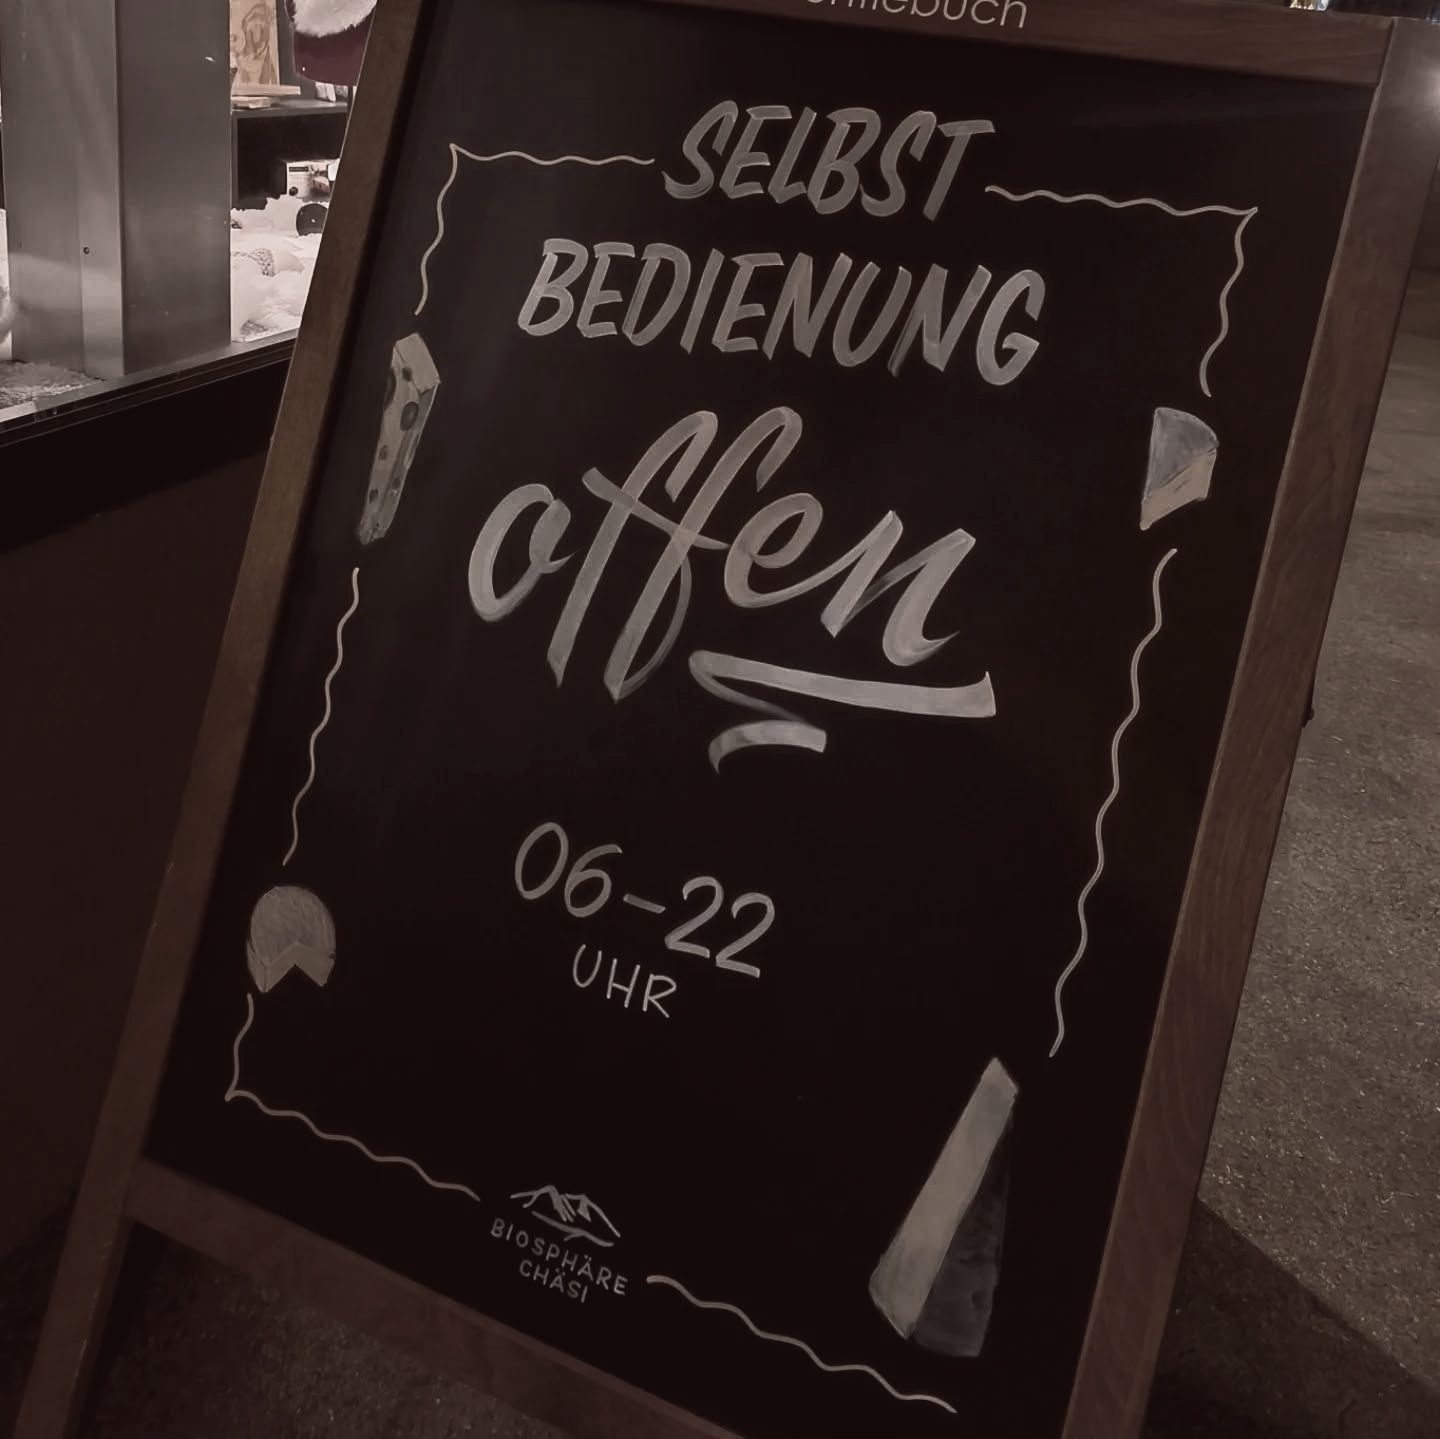 SELBST
BEDIENUNG
offen
06-22
UHR
BIOSPHÄRE
CHÄSI